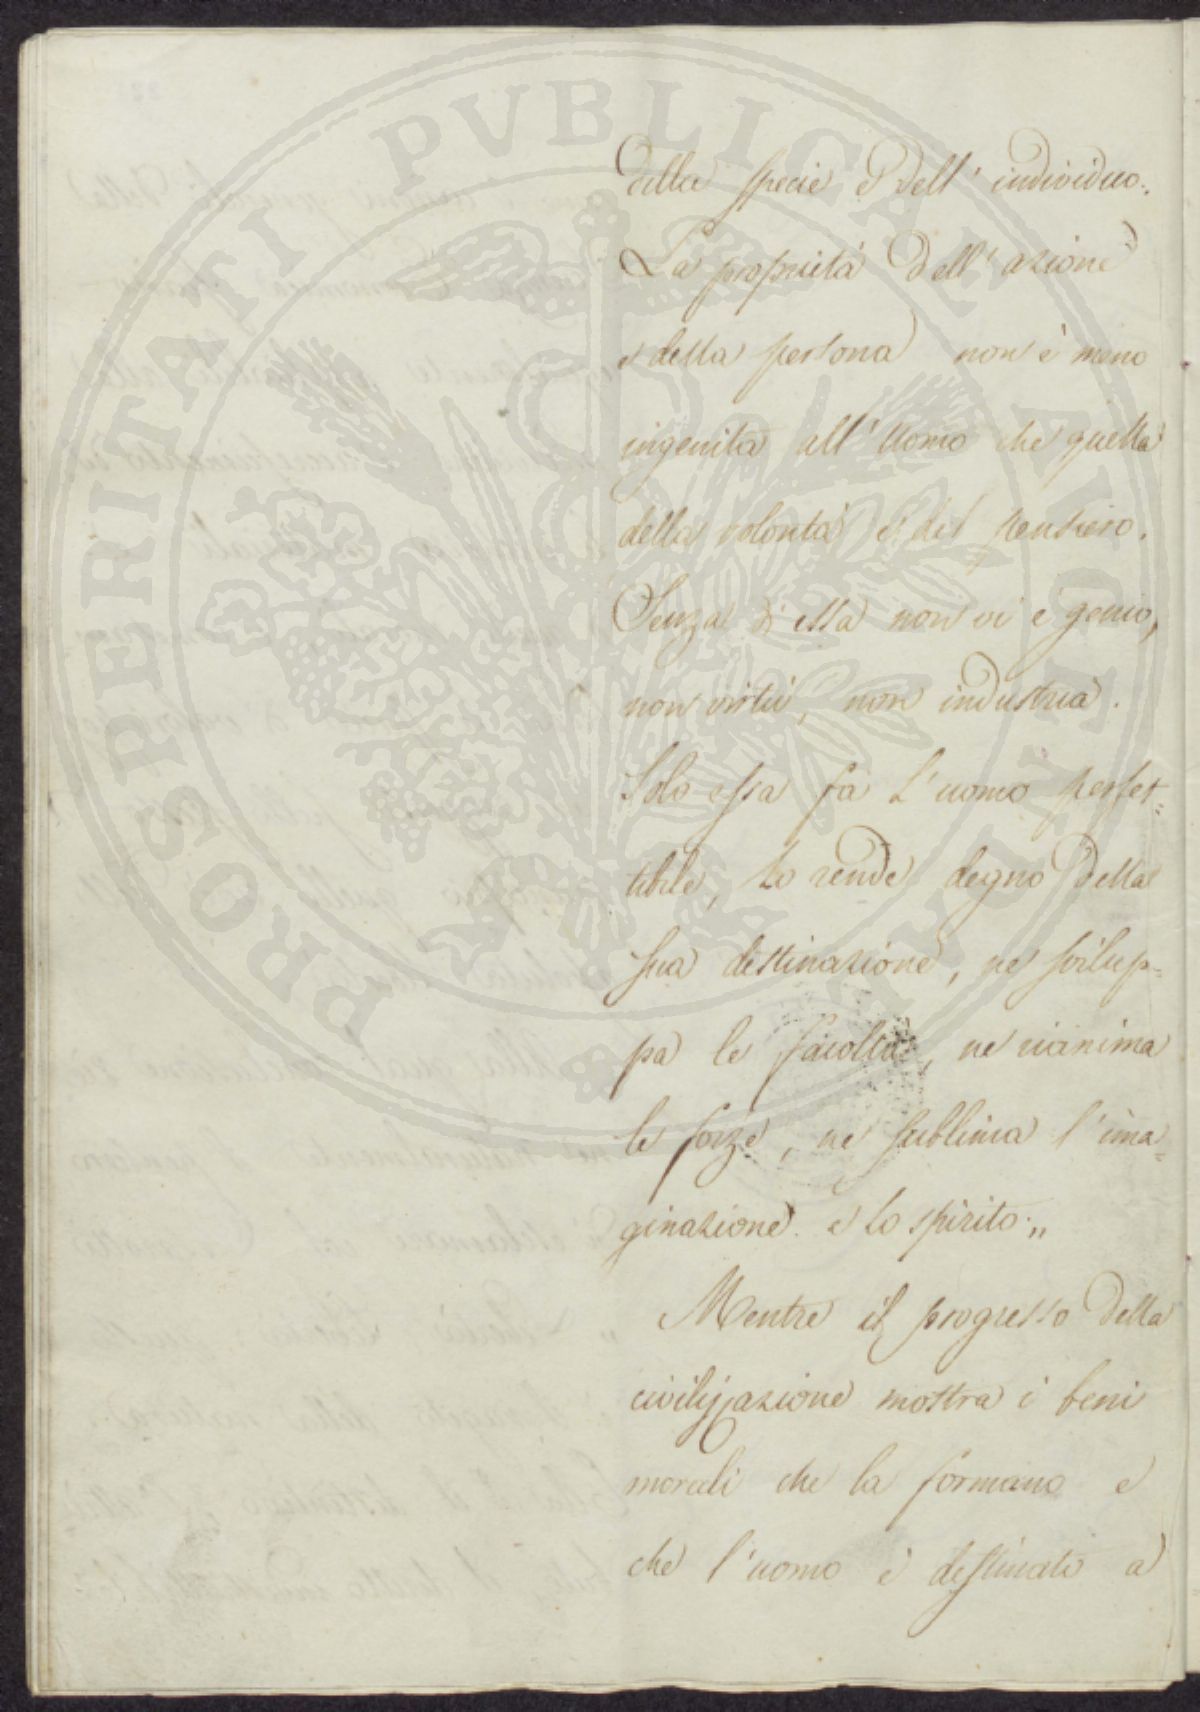 della specie e dell' individuo.
La proprietà dell' azione
e della persona non è meno
ingenita all' Uomo che quella
della volontà e del pensiero.
Senza di essa non vi è genio,
non virtù, non industria.
Solo essa fa l'uomo perfet=
tibile, lo rende degno della
sua destinazione, ne svilup=
pa le facoltà, ne rianima
le forze, ne sublima l'ima=
ginazione e lo spirito. „
Mentre il progresso della
civilizzazione mostra i beni
morali che la formano e
che l'uomo è destinato a
PROSPERITATI PUBLICAE